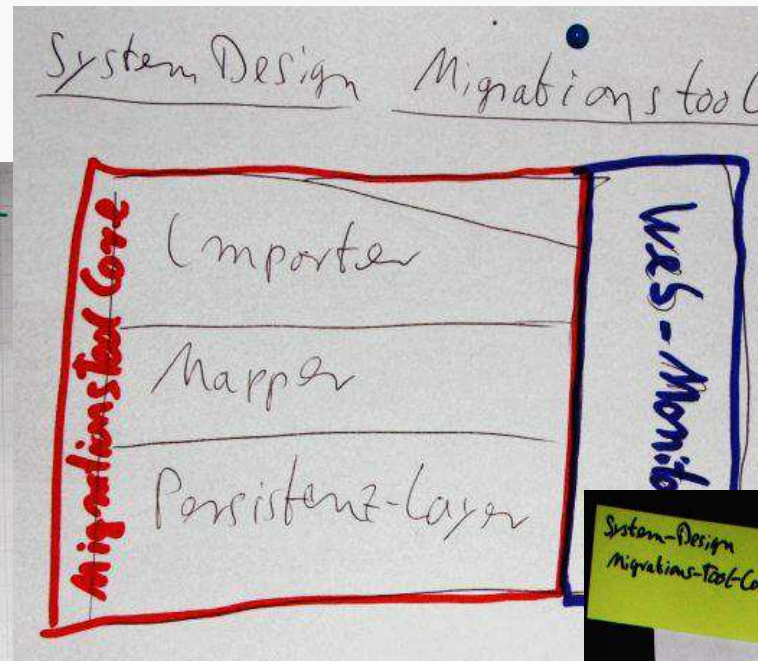 System Design Migrationstool
Migrationstool Core
Importer
Mapper
Persistenz-Layer
Web-Monito
System-Design
Migrations-Tool-Co